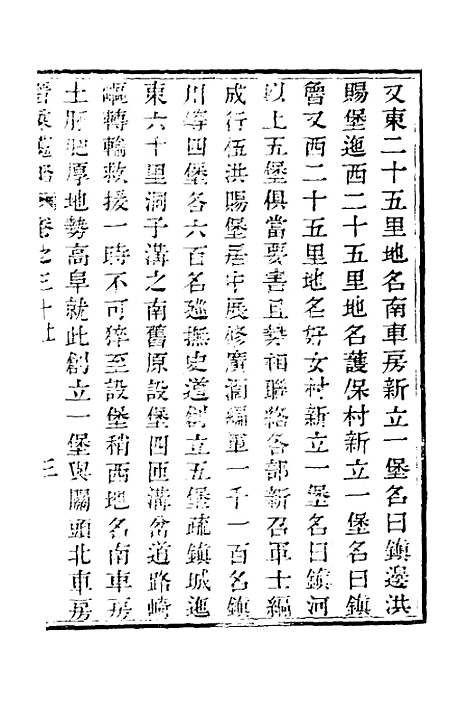 又東二十五里地名南車房新立一堡名曰鎮邊洪
賜堡迤西二十五里地名護保村新立一堡名曰鎮
魯又西二十五里地名好女村新立一堡名曰鎮河
以上五堡俱當要害且勢相聯絡各部新召軍士編
成行伍洪賜堡居中展修廣濶編軍一千一百名鎮
川等四堡各六百名廵撫史道創立五堡疏鎮城迤
東六十里洞子溝之南舊原設堡四匝溝岔道路崎
嶇轉輪救援一時不可猝至設堡稍西地名南車房
土脈肥厚地勢高阜就此創立一堡與關頭北車房
晉乘蒐略卷之三十上 三